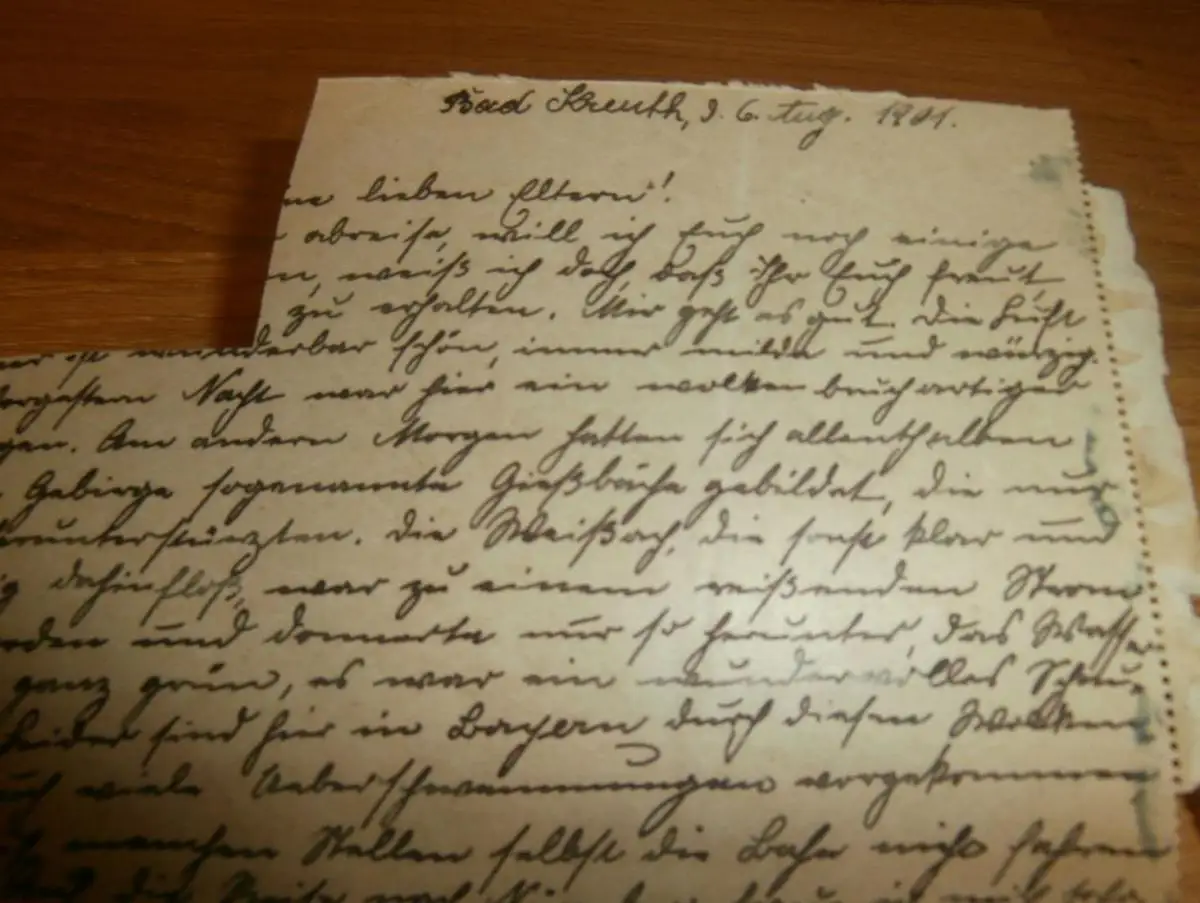 Bad Kreuth, d. 6. Aug. 1901.
ne lieben Eltern!
abreise, will ich Euch noch einige
n, weiß ich doch, daß Ihr Euch freut,
zu erhalten. Mir geht es gut. Die Luft
ist wunderbar schön, immer milde und würzig.
orgestern Nacht war hier ein wolkenbruchartiger
gen. Am andern Morgen hatten sich allenthalben
Gebirge sogenannte Gießbäche gebildet, die nur
erunterstürzten. Die Weißach, die sonst klar und
g dahinfloß, war zu einem reißenden Strom
rden und donnerte nur so herunter, das Wasser
ganz grün, es war ein wundervolles Schau-
Leider sind hier in Bayern durch diesen Wolken
ch viele Ueberschwemmungen vorgekommen
manchen Stellen selbst die Bahn nicht fahren
die Reise nach